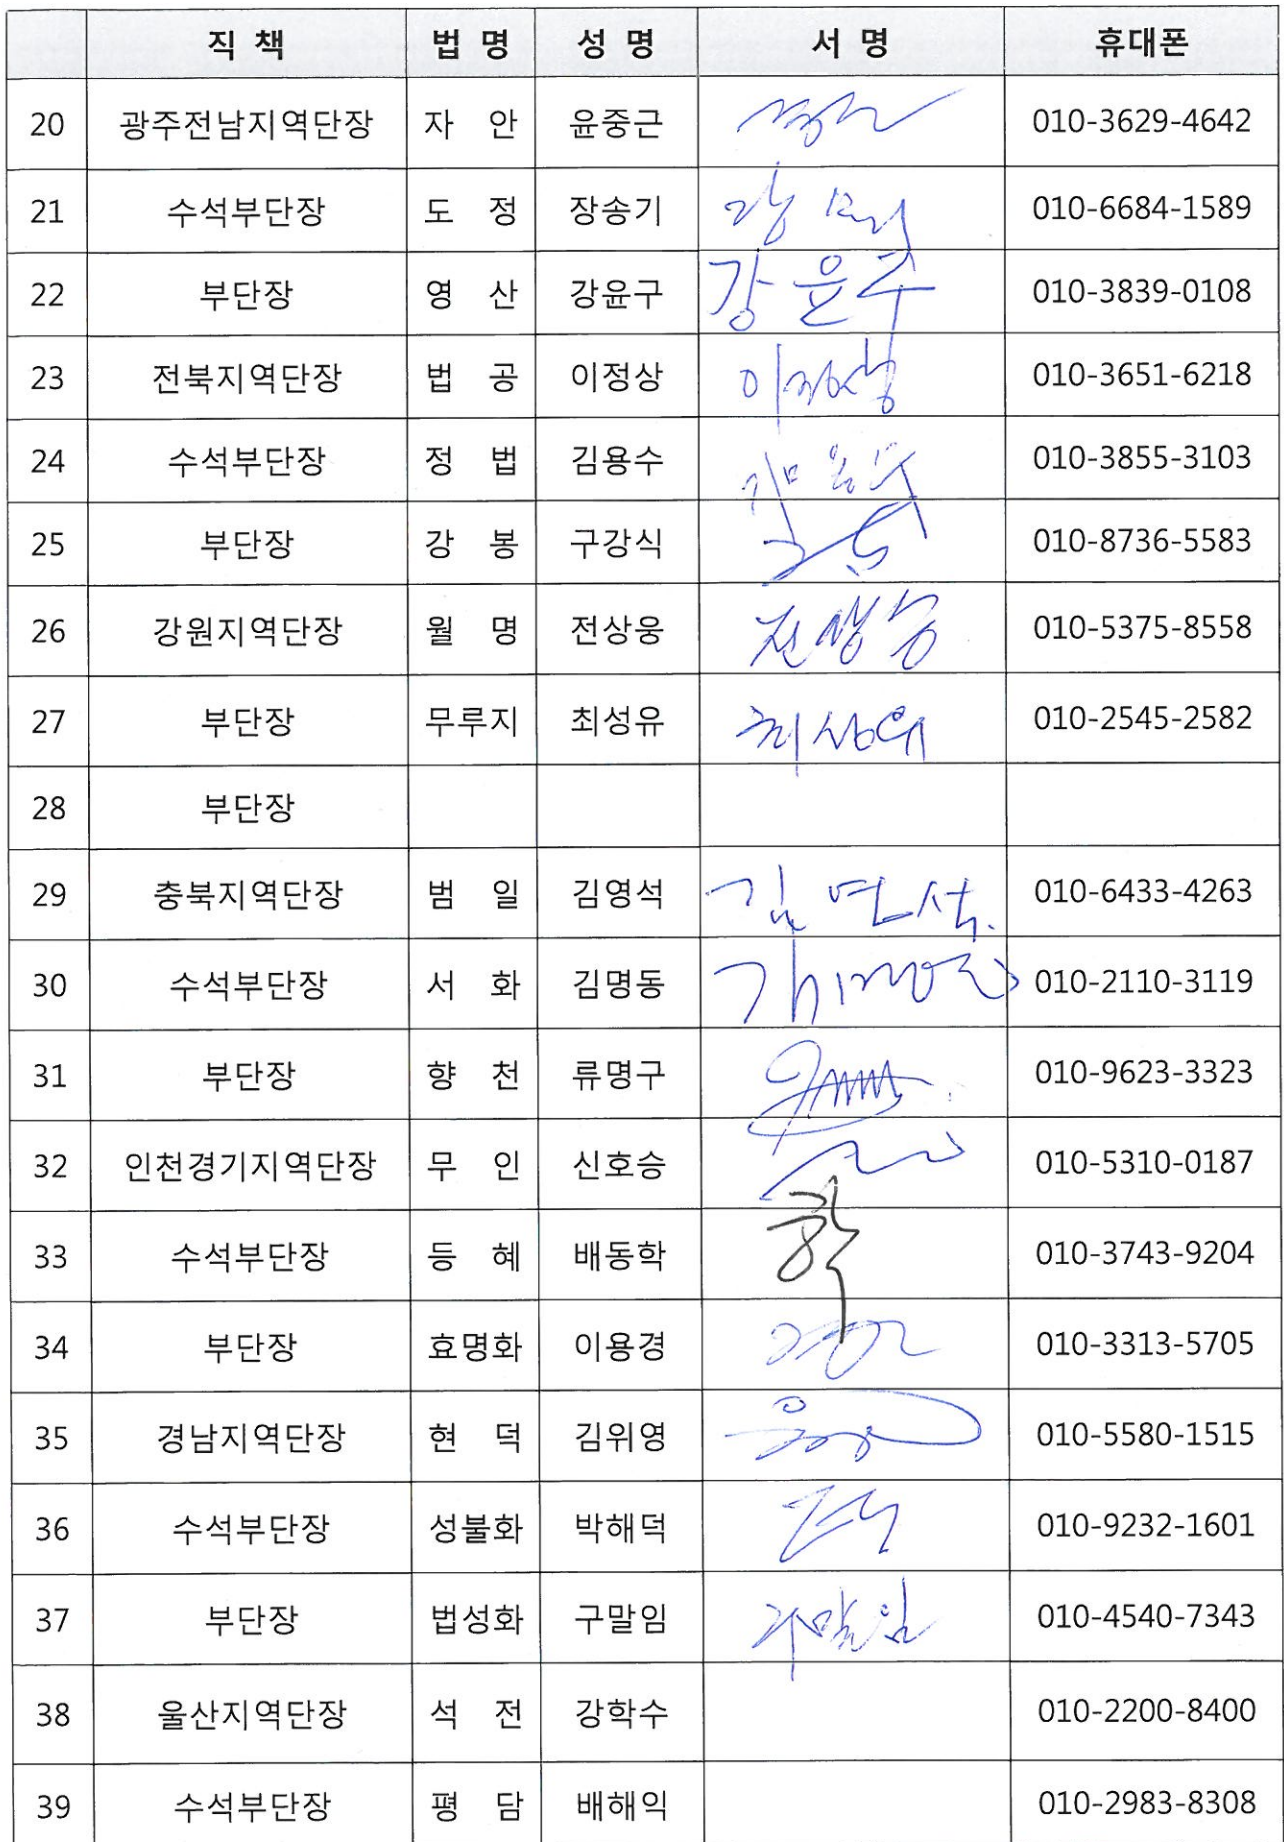 직 책 법 명 성 명 서 명 휴대폰
20 광주전남지역단장 자 안 윤중근 010-3629-4642
21 수석부단장 도 정 장송기 010-6684-1589
22 부단장 영 산 강윤구 강윤구 010-3839-0108
23 전북지역단장 법 공 이정상 이정상 010-3651-6218
24 수석부단장 정 법 김용수 김용수 010-3855-3103
25 부단장 강 봉 구강식 010-8736-5583
26 강원지역단장 월 명 전상웅 전상웅 010-5375-8558
27 부단장 무루지 최성유 최성유 010-2545-2582
28 부단장
29 충북지역단장 범 일 김영석 김영석 010-6433-4263
30 수석부단장 서 화 김명동 김명동 010-2110-3119
31 부단장 향 천 류명구 010-9623-3323
32 인천경기지역단장 무 인 신호승 010-5310-0187
33 수석부단장 등 혜 배동학 학 010-3743-9204
34 부단장 효명화 이용경 010-3313-5705
35 경남지역단장 현 덕 김위영 010-5580-1515
36 수석부단장 성불화 박해덕 010-9232-1601
37 부단장 법성화 구말임 구말임 010-4540-7343
38 울산지역단장 석 전 강학수 010-2200-8400
39 수석부단장 평 담 배해익 010-2983-8308